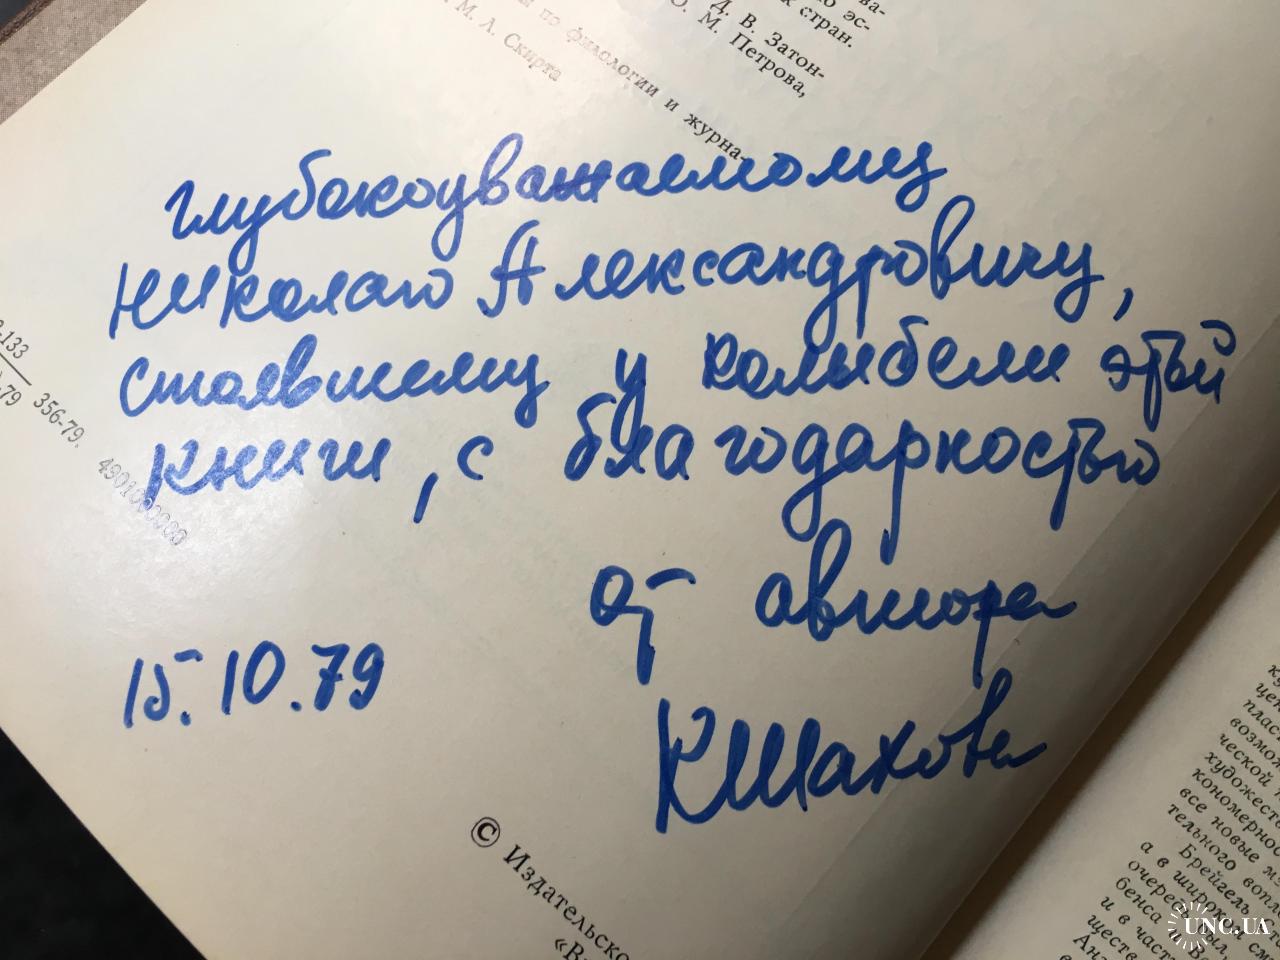 ва-
по эс-
к стран.
Д. В. Затон-
О. М. Петрова,
по филологии и журна-
М. Л. Скирта
глубокоуважаемому
Николаю Александровичу,
стоявшему у колыбели этой
книги, с благодарностью
от автора
15.10.79
КШахова
-133
-79
356-79.
4901000000
© Издательско
«В
ку
цен
пласт
возмож
ческой п
художест
кономернос
все новые м
тельного вопл
Брейгель Ста
а в широком см
очередь был,
бенса и Ве
и в част
ществе
Анг
UNC.UA